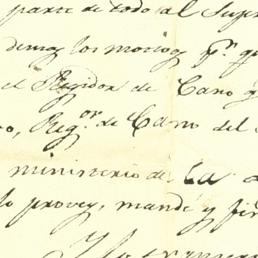 parte de todo al Supr
demas los motivos pr. qu
el Regidor de Cano y
o, Reg.or de Cano del
ministerio de la
lo proveyó, mandé y fir